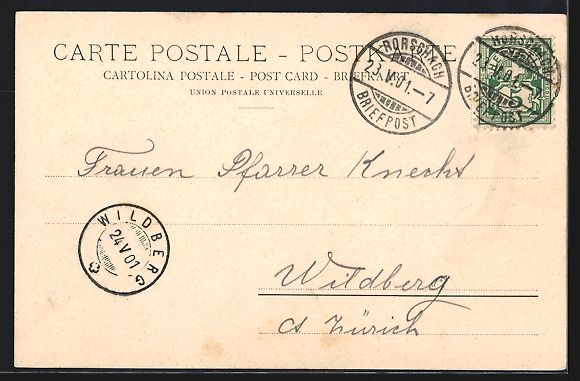 CARTE POSTALE - POSTKARTE
CARTOLINA POSTALE - POST CARD - BRIEFKAART
UNION POSTALE UNIVERSELLE
RORSCHACH
23.V.01.-7
BRIEFPOST
RORSCHACH
BRIEFPOST
Frauen Pfarrer Knecht
WILDBERG
24 V 01
Wildberg
Ct Zürich